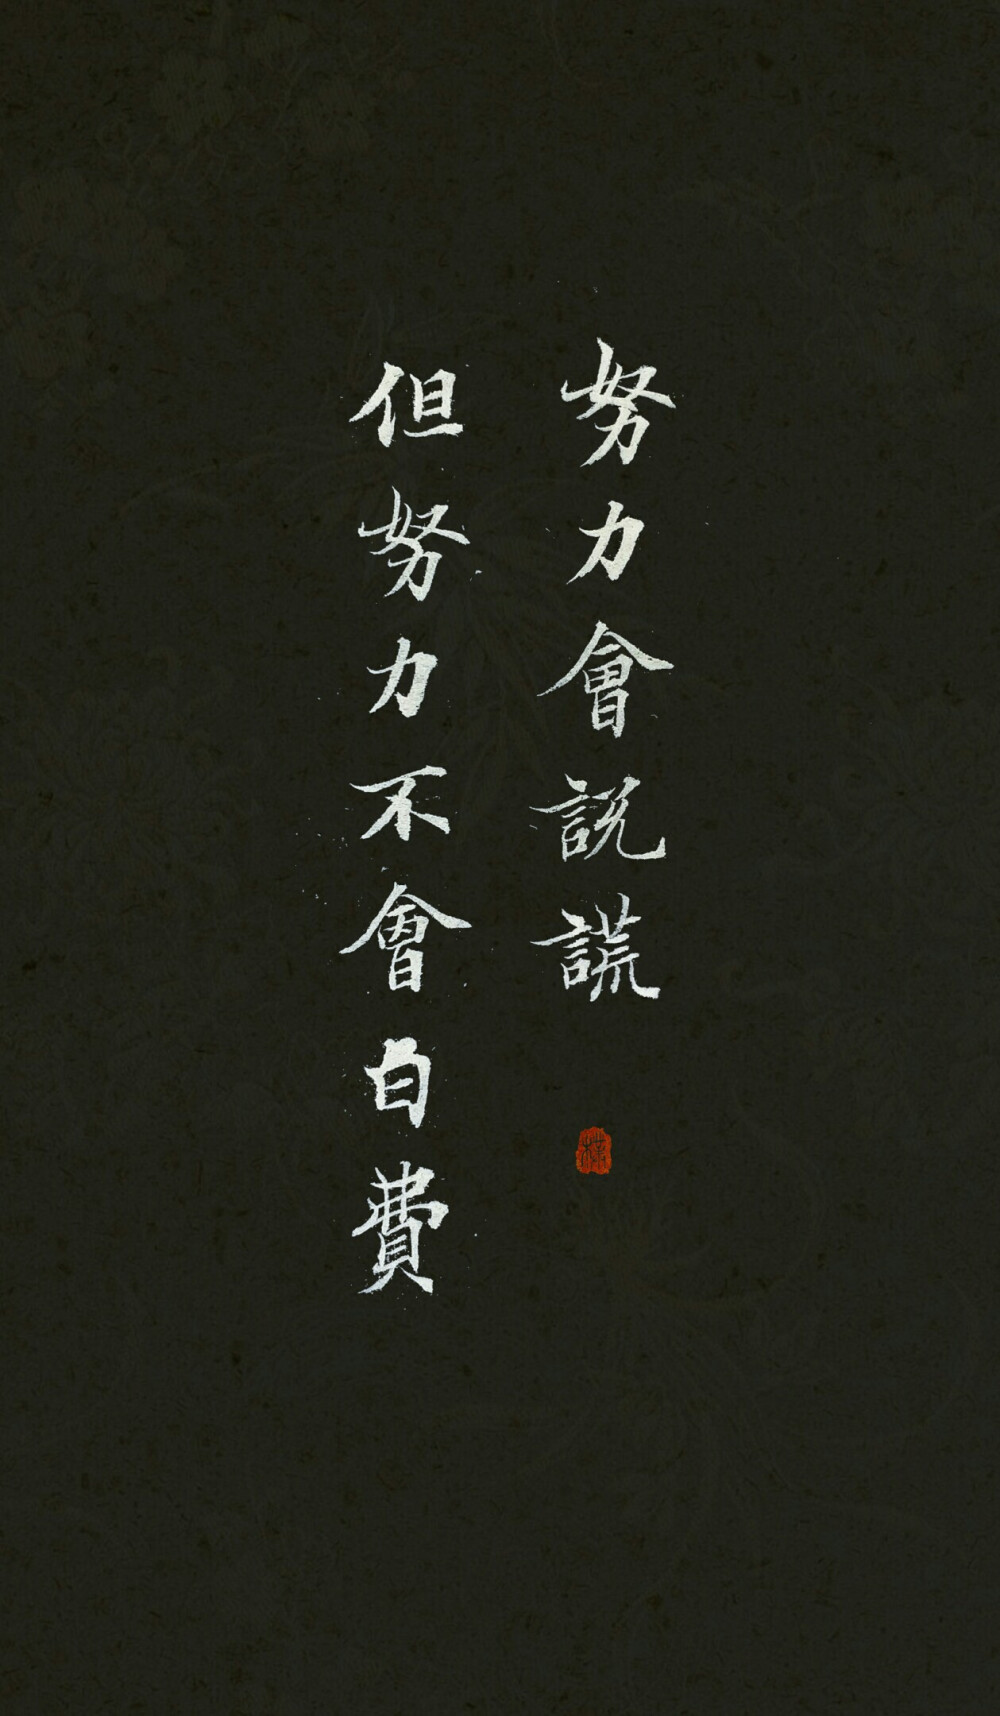 努力會説謊
但努力不會白費